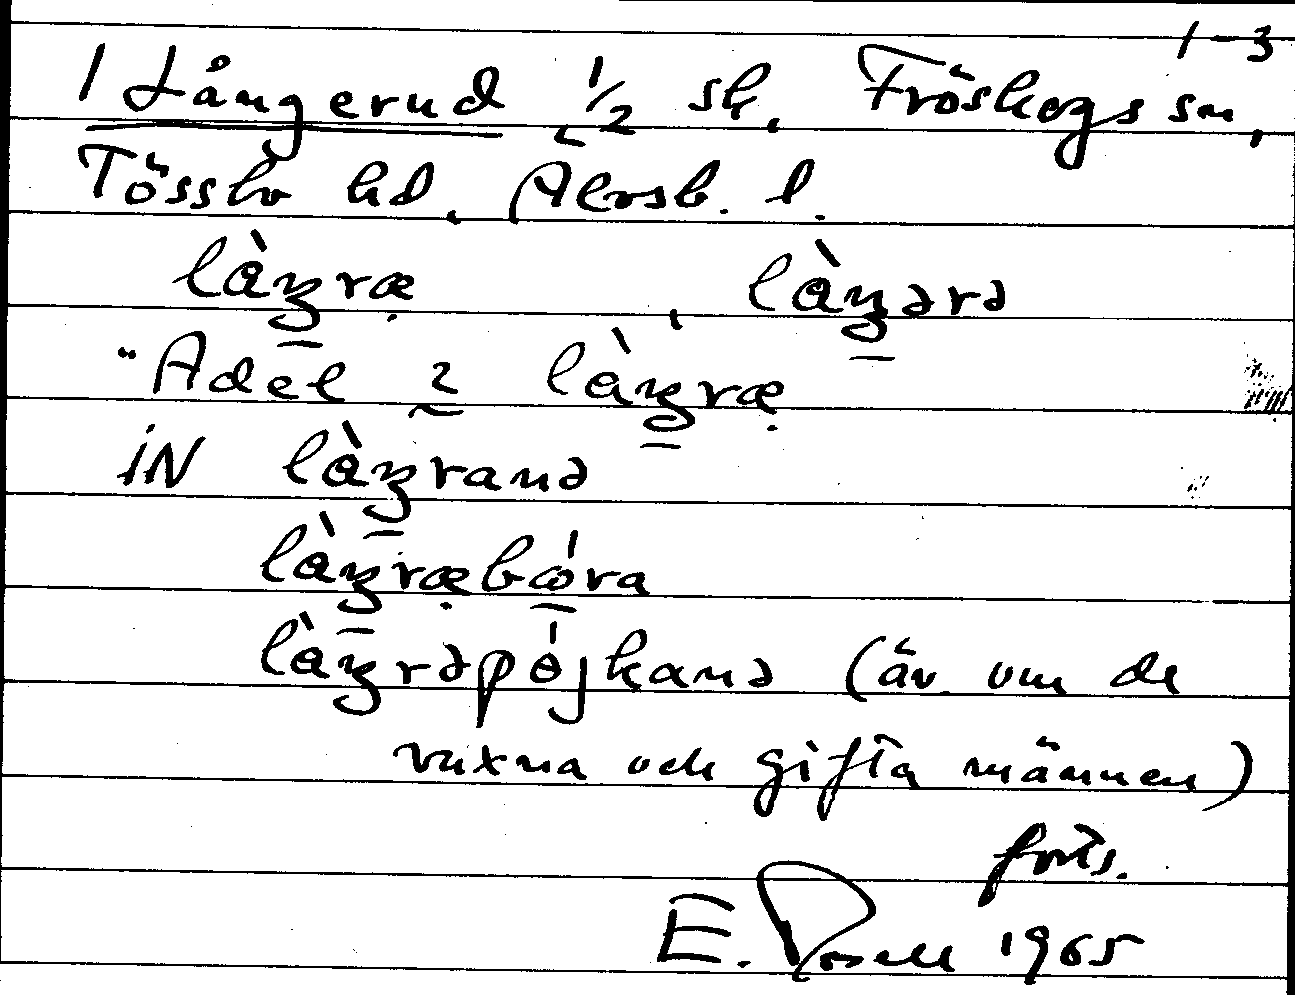 1-3
1 Långerud 1/2 sk. Fröskogs sn,
Tössbo hd. Älvsb. l.
làŋræ̣, làŋərə
"Adel i làŋræ̣
iN làŋranə
làŋræ̣bóra
làŋrəpöjkanə (äv. om de
vuxna och gifta männen)
forts.
E. Rosell 1965